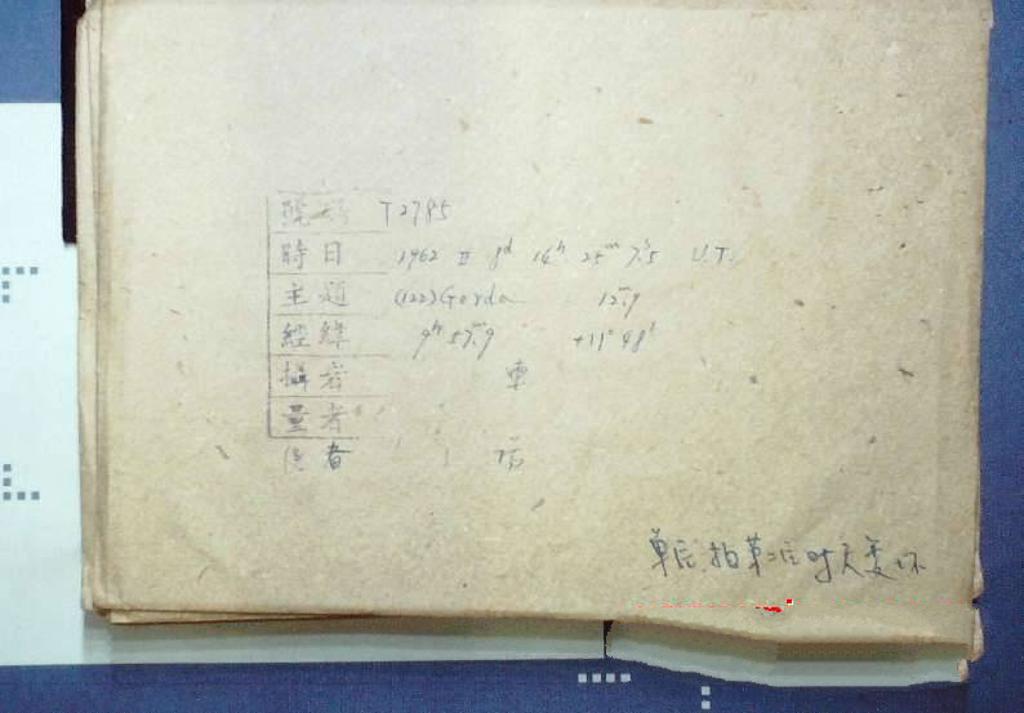 號 T2785
時日 1962 II 8ᵈ 14ʰ 25ᵐ 7ˢ.5 U.T.
主題 (122) Gerda 12ᵐ.9
經緯 9ʰ 57ᵐ.9 +11° 48'
攝者
量者
者
单后,拍第二后时天变坏